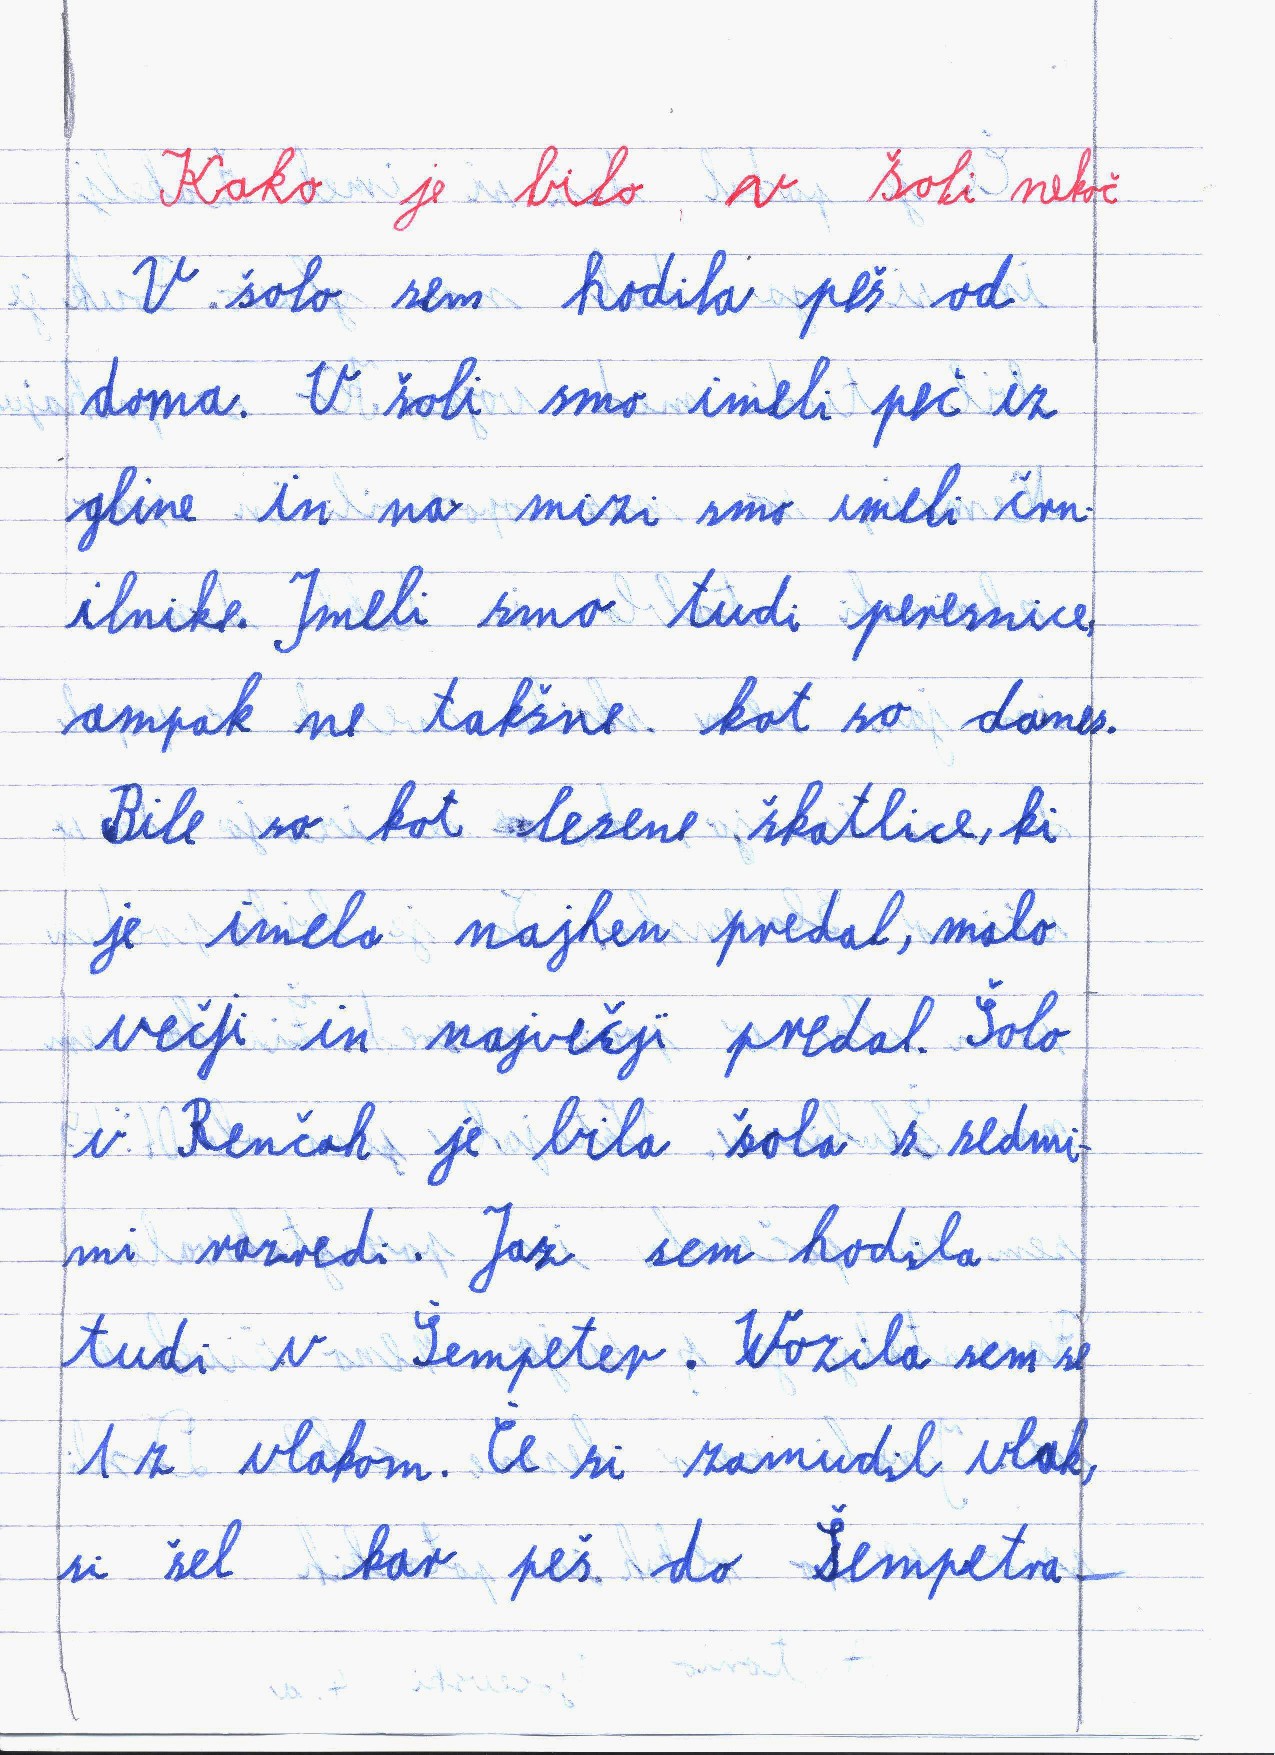 Kako je bilo v šoli nekoč
V šolo sem hodila peš od
doma. V šoli smo imeli peč iz
gline in na mizi smo imeli črn-
ilnike. Imeli smo tudi peresnice,
ampak ne takšne kot so danes.
Bile so kot lesene škatlice, ki
je imela najhen predal, malo
večji in največji predal. Šolo
v Renčah je bila šola s sedmi-
mi razredi. Jaz sem hodila
tudi v Šempeter. Vozila sem se
1 z vlakom. Če si zamudil vlak,
si šel kar peš do Šempetra